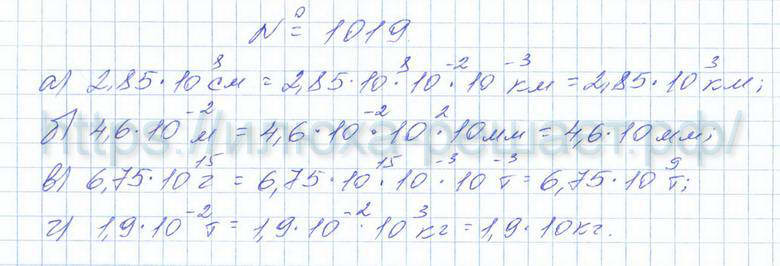 № 1019
а) 2,85·10⁸ см = 2,85·10⁸·10⁻²·10⁻³ км = 2,85·10³ км;
б) 4,6·10⁻² м = 4,6·10⁻²·10²·10 мм = 4,6·10 мм;
в) 6,75·10¹⁵ г = 6,75·10¹⁵·10⁻³·10⁻³ т = 6,75·10⁹ т;
г) 1,9·10⁻² т = 1,9·10⁻²·10³ кг = 1,9·10 кг.
https://илюха-решает.рф/